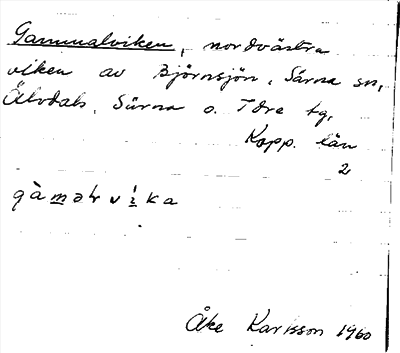 Gammalviken, nordvästra
viken av Björnsjön, Särna sn,
Älvdals, Särna o. Idre tg,
Kopp. län
2
gàmaḷvíka
Åke Karlsson 1960